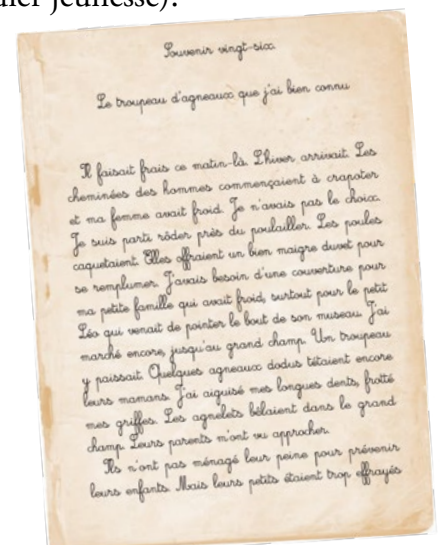 ier jeunesse).
Souvenir vingt-six
Le troupeau d'agneaux que j'ai bien connu
Il faisait frais ce matin-là. L'hiver arrivait. Les
cheminées des hommes commençaient à crapoter
et ma femme avait froid. Je n'avais pas le choix.
Je suis parti rôder près du poulailler. Les poules
caquetaient. Elles offraient un bien maigre duvet pour
se remplumer. J'avais besoin d'une couverture pour
ma petite famille qui avait froid, surtout pour le petit
Léo qui venait de pointer le bout de son museau. J'ai
marché encore, jusqu'au grand champ. Un troupeau
y paissait. Quelques agneaux dodus tétaient encore
leurs mamans. J'ai aiguisé mes longues dents, frotté
mes griffes. Les agnelets bêlaient dans le grand
champ. Leurs parents m'ont vu approcher.
Ils n'ont pas ménagé leur peine pour prévenir
leurs enfants. Mais leurs petits étaient trop effrayés